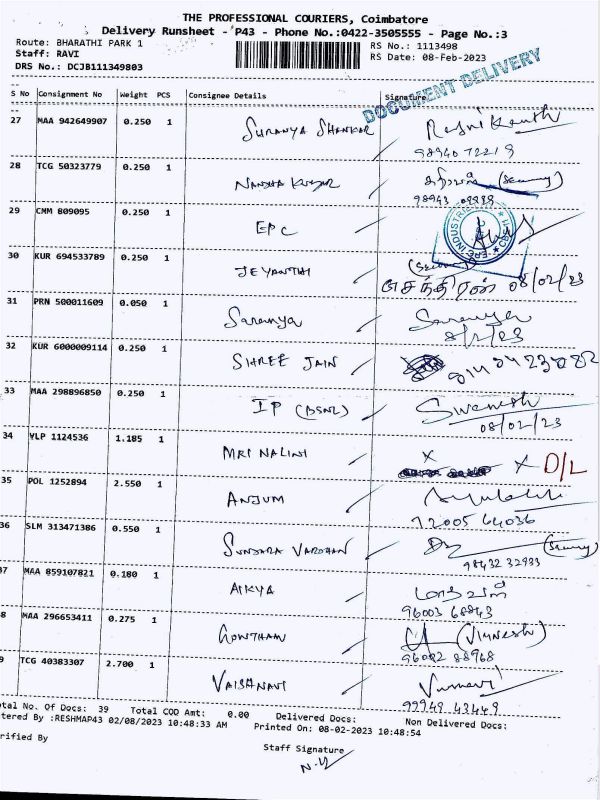 THE PROFESSIONAL COURIERS, Coimbatore
Delivery Runsheet - P43 - Phone No.:0422-3505555 - Page No.:3
Route: BHARATHI PARK 1
RS No.: 1113498
Staff: RAVI
RS Date: 08-Feb-2023
DRS No.: DCJB111349803
DOCUMENT DELIVERY
S No Consignment No Weight PCS Consignee Details Signature
27 MAA 942649907 0.250 1 SURANYA SHANKAR
98940 72219
28 TCG 50323779 0.250 1 NANDHA KUMAR
29 CMM 809095 0.250 1 EPC
30 KUR 694533789 0.250 1 JEYANTHI
08/02/23
31 PRN 500011609 0.050 1 Saranya Saranya
8/2/23
32 KUR 6000009114 0.250 1 SHREE JAIN
33 MAA 298896850 0.250 1 IP (BSNL)
08/02/23
34 VLP 1124536 1.185 1 MRINALINI X X D/L
35 POL 1252894 2.550 1 ANJUM
72005 64036
36 SLM 313471386 0.550 1 SUNDARA VARDHAN
98432 32933
37 MAA 859107821 0.180 1 AIKYA
96003 68843
8 MAA 296653411 0.275 1 GOWTHAM (Vignesh)
96002 88968
9 TCG 40383307 2.700 1 VAISHNAVI
99949 43449
otal No. Of Docs: 39 Total COD Amt: 0.00 Delivered Docs: Non Delivered Docs:
tered By :RESHMAP43 02/08/2023 10:48:33 AM Printed On: 08-02-2023 10:48:54
rified By
Staff Signature